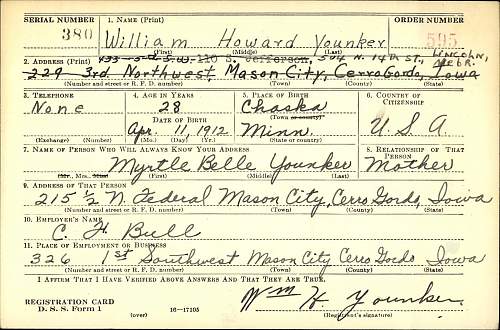 SERIAL NUMBER 1. NAME (Print) ORDER NUMBER
380 William Howard Younker 595
(First) (Middle) (Last)
2. ADDRESS (Print) 133-5th S.W. 110 S. Jefferson, 504 N. 14th St., LINCOLN, NEBR.
229 3rd. Northwest Mason City, Cerro Gordo, Iowa
(Number and street or R. F. D. number) (Town) (County) (State)
3. TELEPHONE 4. AGE IN YEARS 5. PLACE OF BIRTH 6. COUNTRY OF CITIZENSHIP
None 28 Chaska
(Town or county)
DATE OF BIRTH
Apr. 11, 1912 Minn. U.S.A.
(Exchange) (Number) (Mo.) (Day) (Yr.) (State or country)
7. NAME OF PERSON WHO WILL ALWAYS KNOW YOUR ADDRESS 8. RELATIONSHIP OF THAT PERSON
Myrtle Belle Younker Mother
(Mr., Mrs., Miss) (First) (Middle) (Last)
9. ADDRESS OF THAT PERSON
215 1/2 N. Federal Mason City, Cerro Gordo, Iowa
(Number and street or R. F. D. number) (Town) (County) (State)
10. EMPLOYER'S NAME
C. H. Bull
11. PLACE OF EMPLOYMENT OR BUSINESS
326 1st Southwest Mason City Cerro Gordo Iowa
(Number and street or R. F. D. number) (Town) (County) (State)
I AFFIRM THAT I HAVE VERIFIED ABOVE ANSWERS AND THAT THEY ARE TRUE.
REGISTRATION CARD
D. S. S. Form 1 (over) 16—17105 Wm H. Younker
(Registrant's signature)